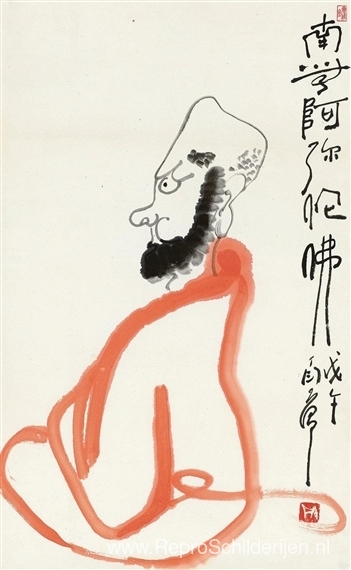 南無阿弥陀佛
戊午
www.ReproSchilderijen.nl